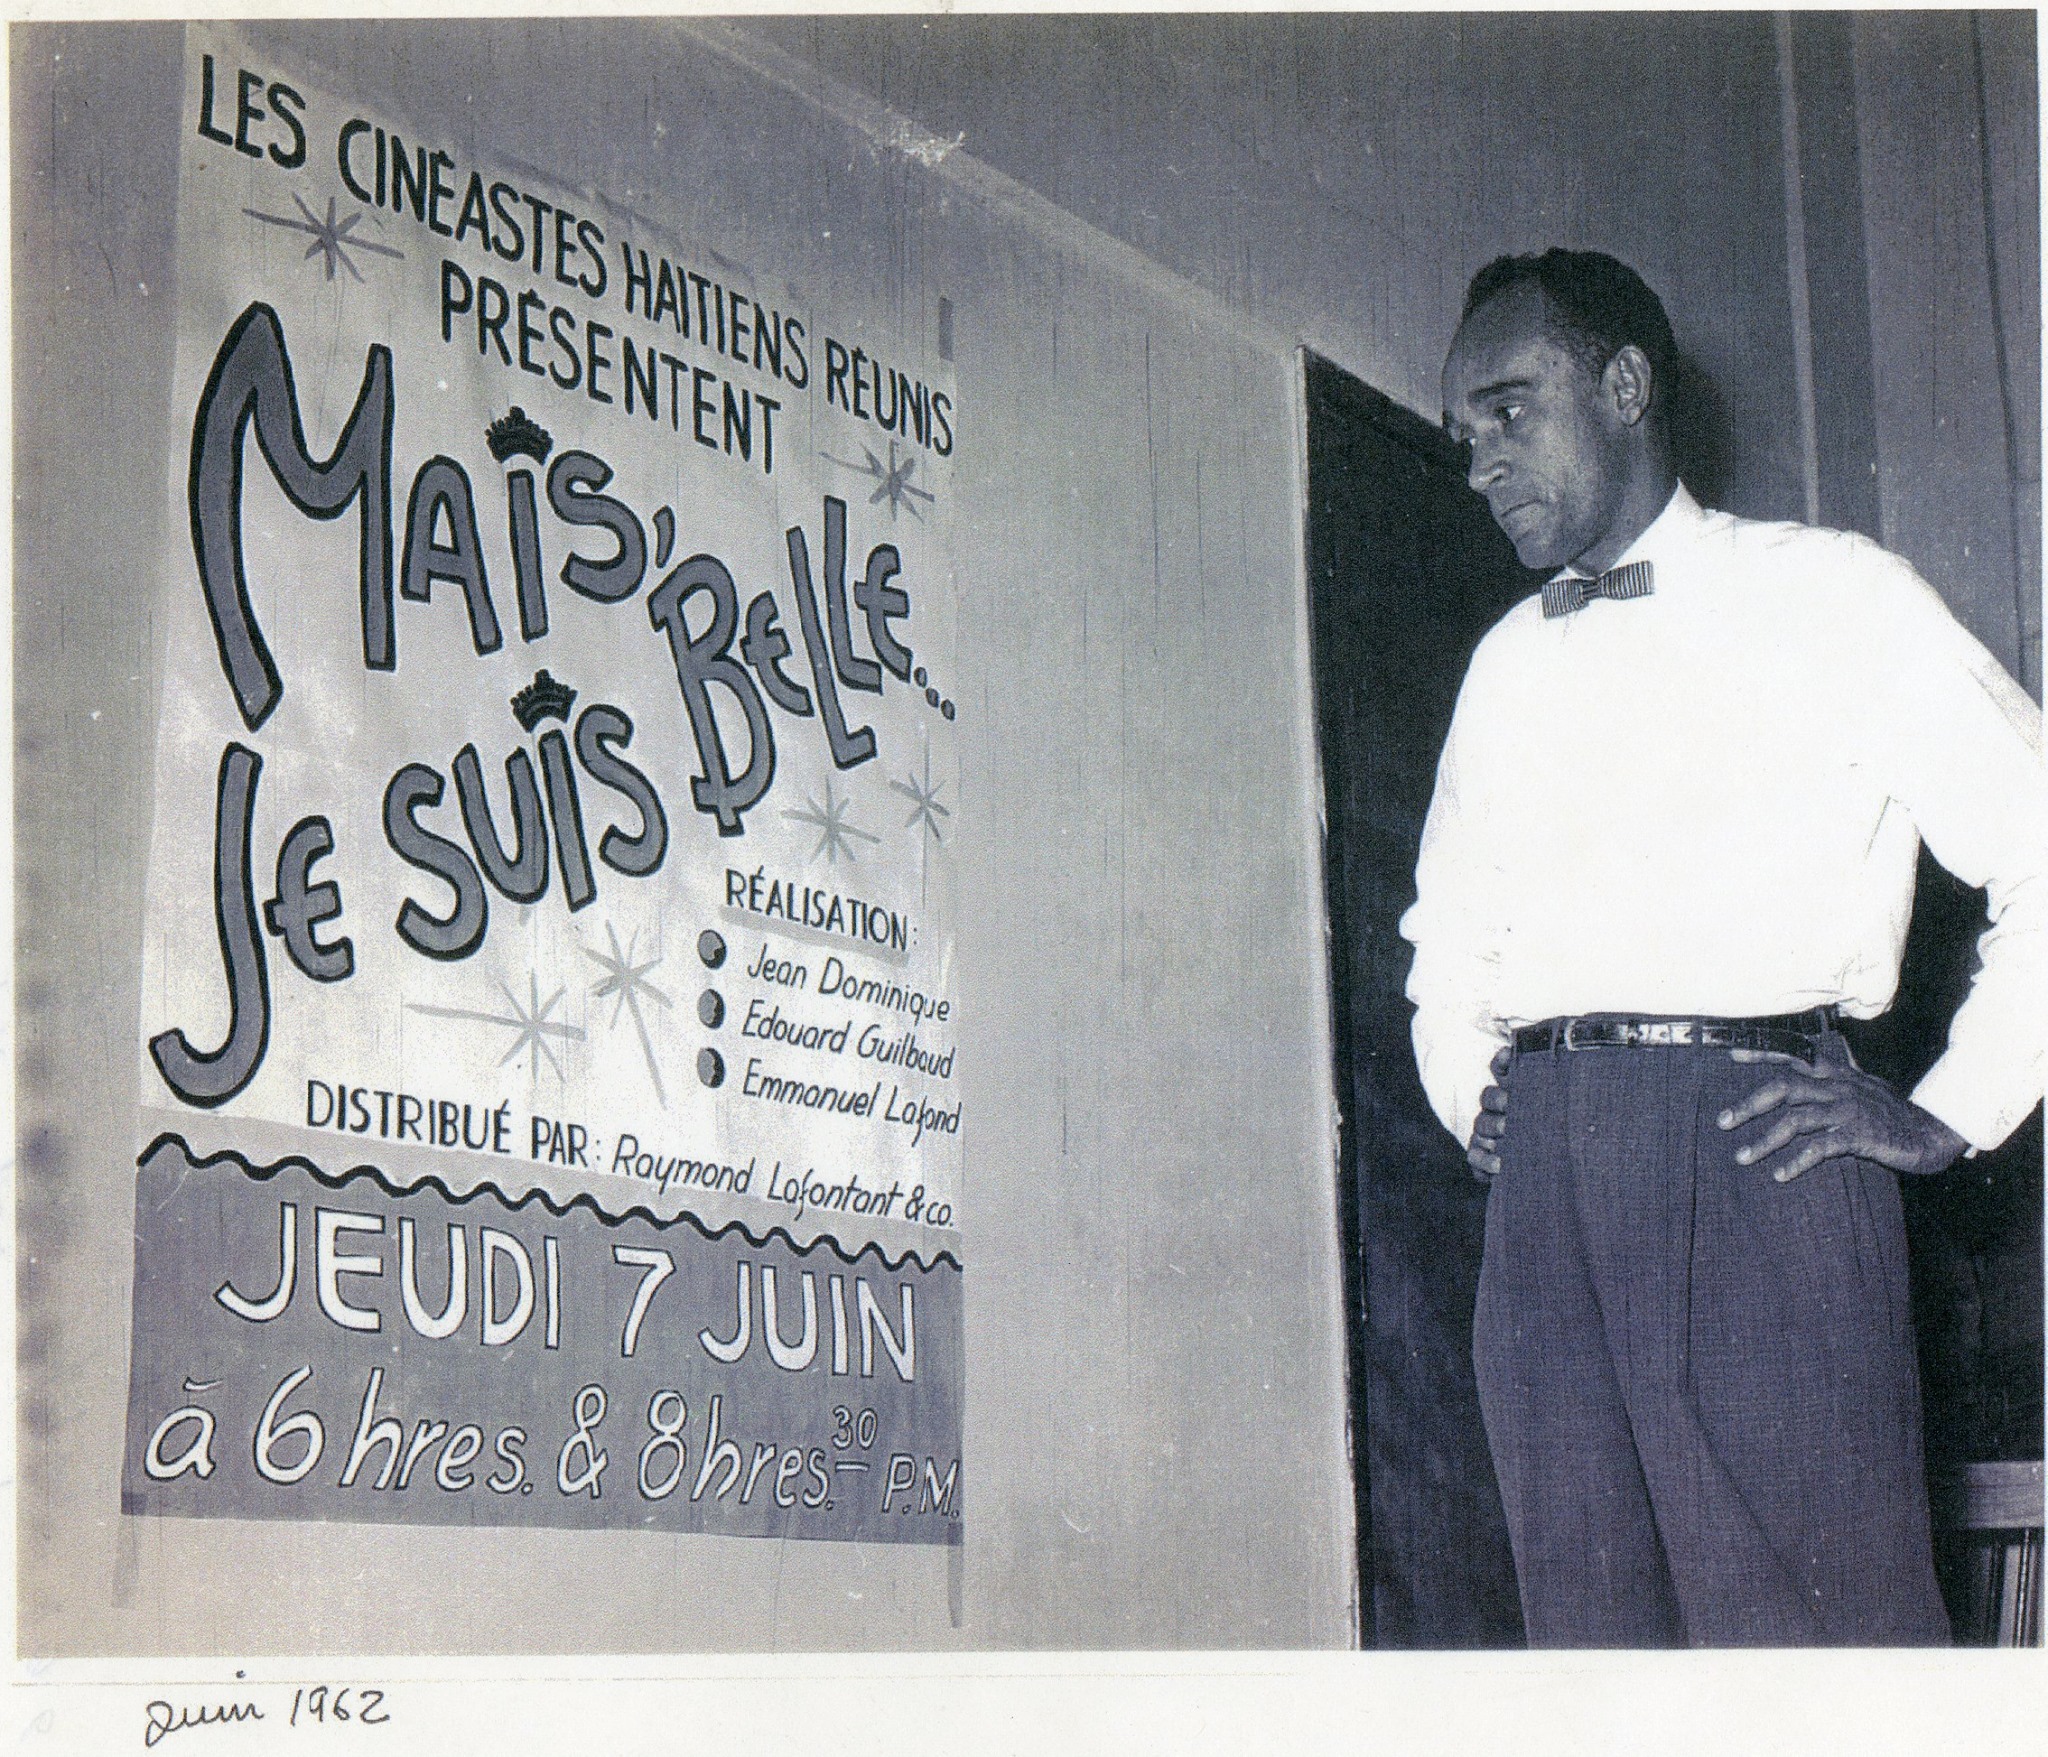 LES CINÉASTES HAITIENS RÉUNIS
PRÉSENTENT
MAIS, BELLE...
JE SUIS
RÉALISATION:
Jean Dominique
Edouard Guilbaud
Emmanuel Lafond
DISTRIBUÉ PAR: Raymond Lafontant & co.
JEUDI 7 JUIN
à 6 hres. & 8 hres. 30 P.M.
juin 1962